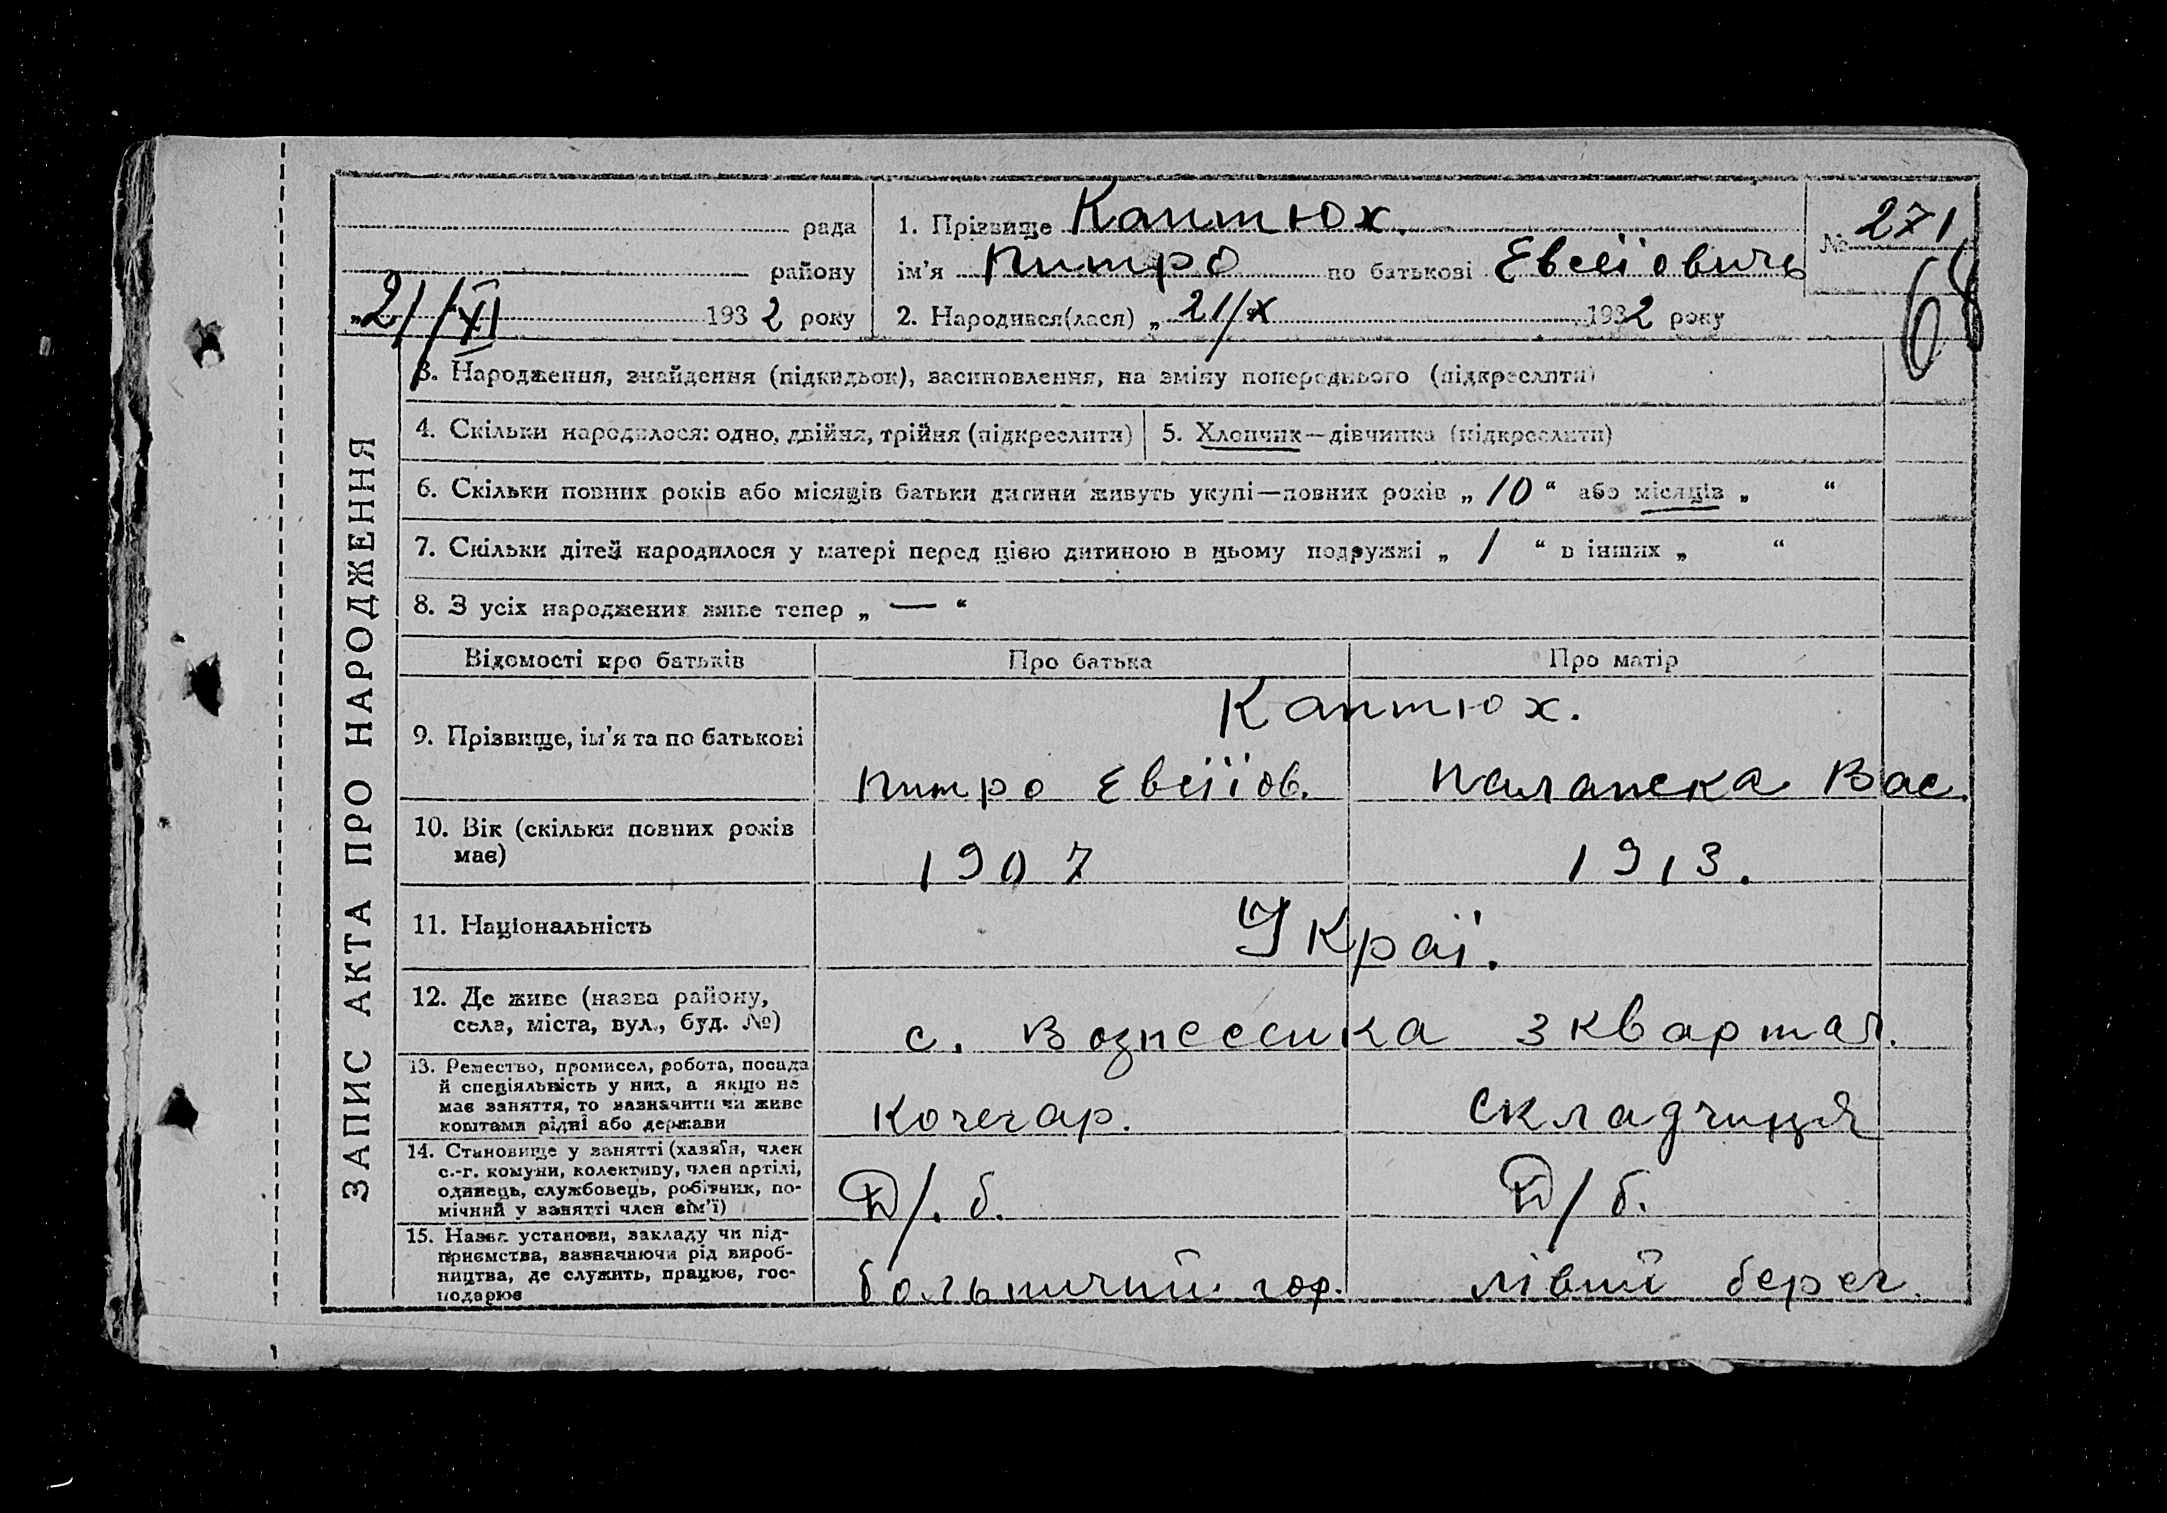 рада
району
„21/XI 1932 року
1. Прізвище Каптюх.
ім'я Питро по батькові Евсеїовичь
2. Народився(лася) „21/X 1932 року
№ 271
68
ЗАПИС АКТА ПРО НАРОДЖЕННЯ
3. Народження, знайдення (підкидьок), засиновлення, на зміну попереднього (підкреслити)
4. Скільки народилося: одно, двійня, трійня (підкреслити)
5. Хлопчик—дівчинка (підкреслити)
6. Скільки повних років або місяців батьки дитини живуть укупі—повних років „10“ або місяців „ “
7. Скільки дітей народилося у матері перед цією дитиною в цьому подружжі „ 1 “ в інших „ “
8. З усіх народжених живе тепер „ — “
Відомості про батьків
Про батька
Про матір
9. Прізвище, ім'я та по батькові
Каптюх.
Питро Евсіїов.
Палапска Вас.
10. Вік (скільки повних років
має)
1907
1913.
11. Національність
Украї.
12. Де живе (назва району,
села, міста, вул., буд. №)
с. Вознесенка 3 квартал.
13. Ремество, промисел, робота, посада
й спеціяльність у них, а якщо не
має заняття, то зазначити чи живе
коштами рідні або держави
Кочегар.
складчиця
14. Становище у занятті (хазяїн, член
с.-г. комуни, колективу, член артілі,
одинець, службовець, робітник, по-
мічний у занятті член сім'ї)
15. Назва установи, закладу чи під-
приємства, зазначаючи рід вироб-
ництва, де служить, працює, гос-
подарює
больничий гор.
лівий берег.